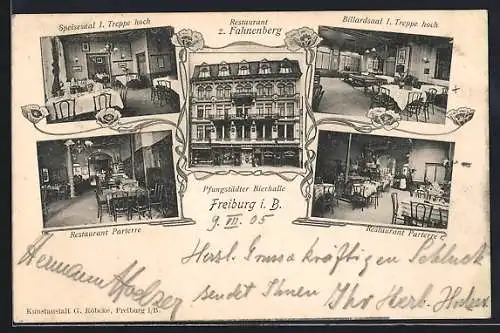 Speisesaal 1. Treppe hoch
Restaurant
z. Fahnenberg
Billardsaal 1. Treppe hoch
Pfungstädter Bierhalle
Freiburg i. B.
9. VII. 05
Restaurant Parterre
Restaurant Parterre
Herzl. Gruss a kräftigen Schluck
sendet Ihnen Ihr Herm. Holzer
Hermann Holzer
Kunstanstalt G. Röbcke, Freiburg i/B.